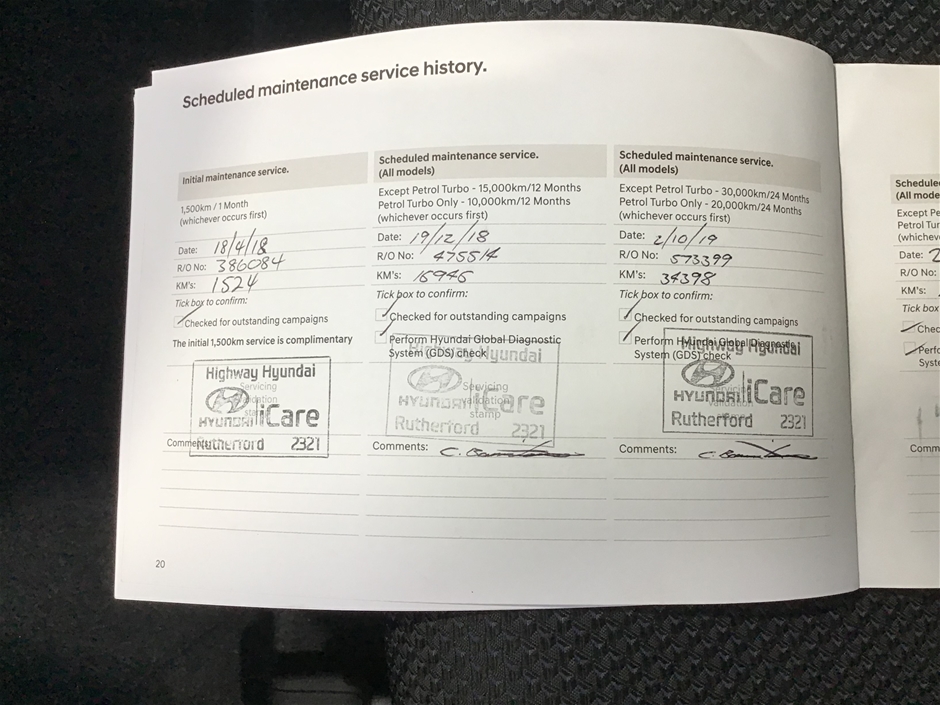 Scheduled maintenance service history.
Initial maintenance service.
1,500km / 1 Month
(whichever occurs first)
Date: 18/4/18
R/O No: 386084
KM's: 1524
Tick box to confirm:
Checked for outstanding campaigns
The initial 1,500km service is complimentary
Highway Hyundai
Servicing
validation
stamp
HYUNDAI iCare
Rutherford 2321
Comments:
Scheduled maintenance service.
(All models)
Except Petrol Turbo - 15,000km/12 Months
Petrol Turbo Only - 10,000km/12 Months
(whichever occurs first)
Date: 19/12/18
R/O No: 475514
KM's: 15946
Tick box to confirm:
Checked for outstanding campaigns
Perform Hyundai Global Diagnostic
System (GDS) check
Highway Hyundai
Servicing
validation
stamp
HYUNDAI iCare
Rutherford 2321
Comments:
Scheduled maintenance service.
(All models)
Except Petrol Turbo - 30,000km/24 Months
Petrol Turbo Only - 20,000km/24 Months
(whichever occurs first)
Date: 2/10/19
R/O No: 573399
KM's: 34398
Tick box to confirm:
Checked for outstanding campaigns
Perform Hyundai Global Diagnostic
System (GDS) check
Highway Hyundai
Servicing
validation
HYUNDAI iCare
Rutherford 2321
Comments:
20
Schedule
(All mode
Except Pe
Petrol Tur
(whichev
Date: 2
R/O No:
KM's:
Tick box
Chec
Perfo
Syste
Comm